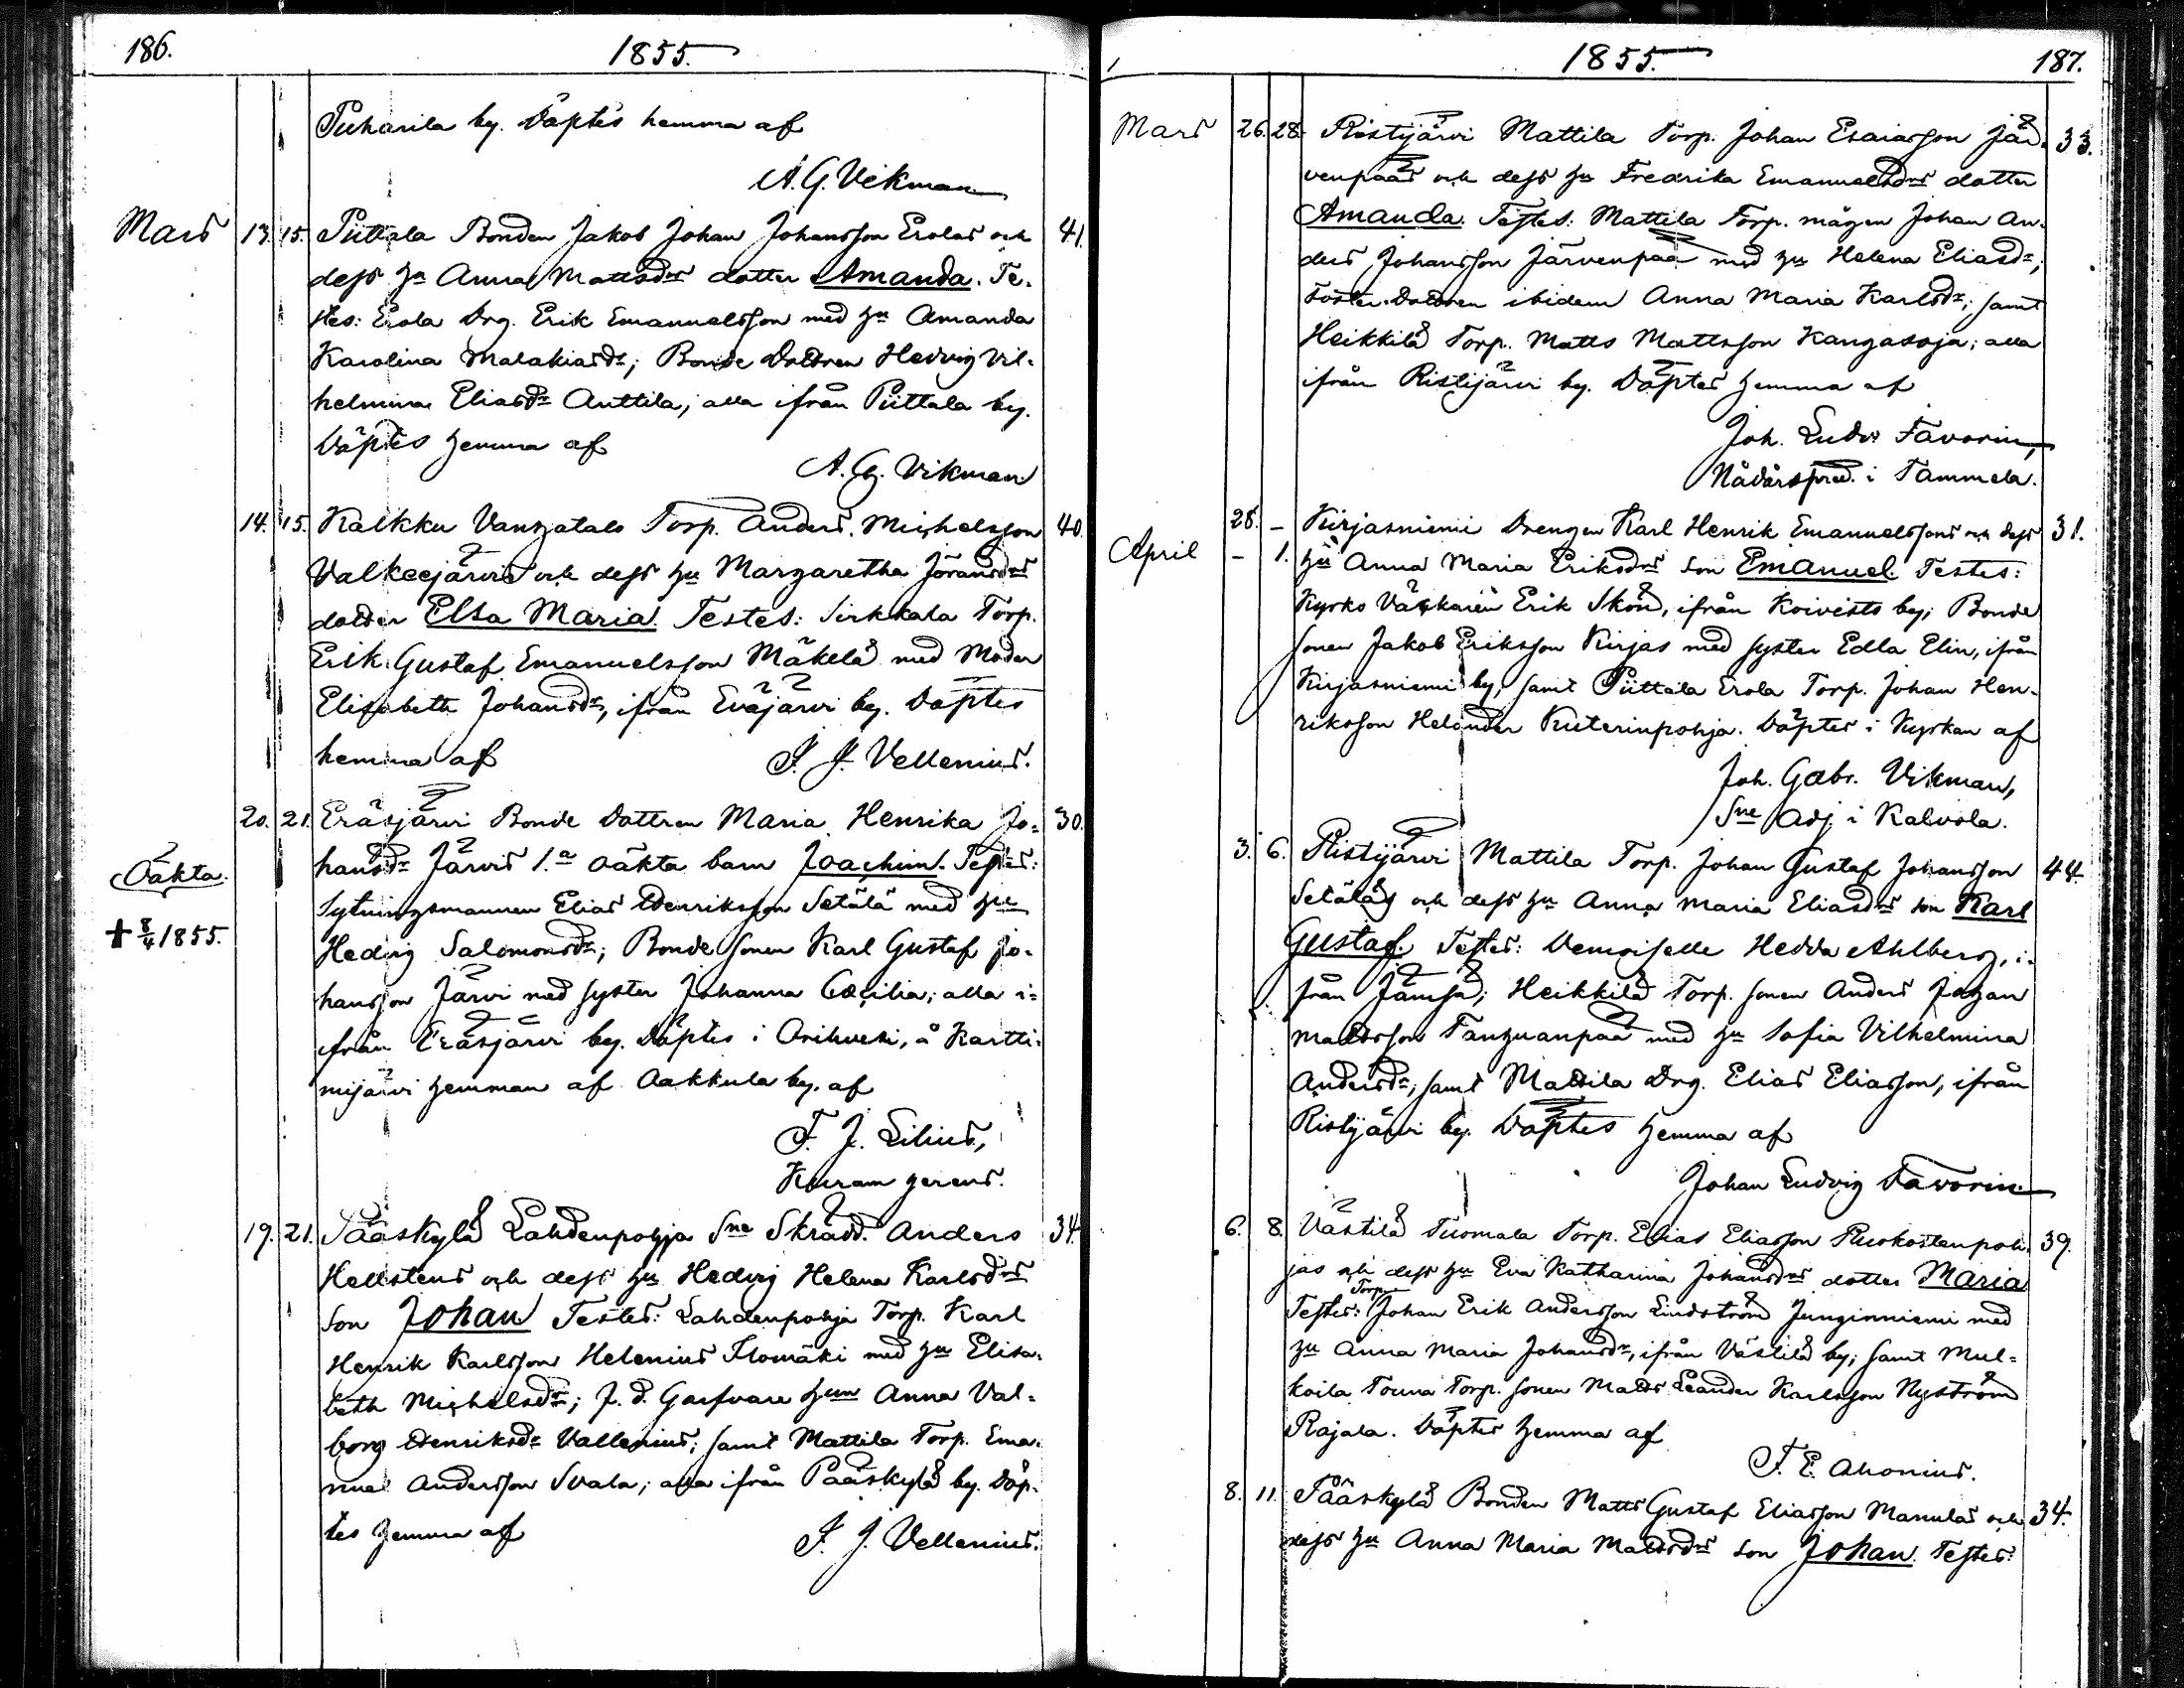 186. 1855.
Puharila by. Döptes hemma af
A. G. Vikman
Mars 13. 15. Pittala Bonden Jakob Johan Johansson Erolas och 41.
dess hu Anna Mattsdrs dotter Amanda. Te-
stes: Erola Drg. Erik Emanuelsson med hu Amanda
Karolina Malakiasdr; Bonde Dottren Hedvig Vil-
helmina Eliasdr Anttila; alla ifrån Pittala by.
Döptes hemma af
A. G. Vikman
14. 15. Kalkku Vanhatalo Torp. Anders Michelsson 40.
Valkeejärvis och dess hu Margaretha Jöransdrs
dotter Elsa Maria. Testes: Sirkkala Torp.
Erik Gustaf Emanuelsson Mäkelä med Moder
Elisabeth Johansdr, ifrån Eväjärvi by. Döptes
hemma af J. J. Vellenius.
20. 21. Eräsjärvi Bonde Dottren Maria Henrika Jo- 30.
hansdr Järvis 1.a oäkta barn Joachim. Testes:
Oäkta.
Sytningsmannen Elias Henriksson Setälä med hu
+ 8/4 1855.
Hedvig Salomonsdr; Bonde sonen Karl Gustaf Jo-
hansson Järvi med syster Johanna Cæcilia; alla i-
från Eräsjärvi by. Döptes i Orihvesi, å Kartti-
mijärvi hemman af Aakkula by. af
F. J. Lilius,
Kuram gerens.
19. 21. Pääskylä Lahdenpohja Sne Skrädd. Anders 34.
Hellstens och dess hu Hedvig Helena Karlsdrs
son Johan Testes: Lahdenpohja Torp. Karl
Henrik Karlsson Helenius Ilomäki med hu Elisa-
beth Michelsdr; f. d. Garfvare hun Anna Val-
borg Henriksdr Vallenius; samt Mattila Torp. Ema-
nuel Andersson Svala; alla ifrån Pääskylä by. Döp-
tes hemma af J. J. Vellenius.
1855. 187.
Mars 26. 28. Ristijärvi Mattila Torp. Johan Esaiasson Jär- 33.
venpääs och dess hu Fredrika Emanuelsdrs dotter
Amanda. Testes: Mattila Torp. mågen Johan An-
ders Johansson Järvenpää med hu Helena Eliasdr;
Foster Dottren ibidem Anna Maria Karlsdr; samt
Heikkilä Torp. Matts Mattsson Kangasoja; alla
ifrån Ristijärvi by. Döptes hemma af
Joh. Ludv. Favorin,
Nådårspred. i Tammela.
28. – Kirjasniemi Drengen Karl Henrik Emanuelssons och dess 31.
April – 1. hu Anna Maria Eriksdrs son Emanuel. Testes:
Kyrko Väktaren Erik Skön, ifrån Koivisto by; Bonde
sonen Jakob Eriksson Kirjas med syster Edla Elin, ifrån
Kirjasniemi by; samt Pittala Erola Torp. Johan Hen-
riksson Helander Kuterinpohja. Döptes i Kyrkan af
Joh. Gabr. Vikman,
Sne Adj. i Kalvola.
3. 6. Ristijärvi Mattila Torp. Johan Gustaf Johansson 44.
Setäläs och dess hu Anna Maria Eliasdrs son Karl
Gustaf. Testes: Demoiselle Hedda Ahlberg, i-
från Jämsä; Heikkilä Torp. sonen Anders Johan
Mattsson Tanhuanpää med hu Sofia Vilhelmina
Andersdr; samt Mattila Drg. Elias Eliasson, ifrån
Ristijärvi by. Döptes hemma af
Johan Ludvig Favorin
6. 8. Västilä Tuomala Torp. Elias Eliasson Ruokostenpoh- 39.
jas och dess hu Eva Katharina Johansdrs dotter Maria
Testes: Torp. Johan Erik Andersson Lindström Junginniemi med
hu Anna Maria Johansdr, ifrån Västilä by; samt Mul-
koila Touna Torp. sonen Matts Leander Karlsson Nyström
Rajala. Döptes hemma af
F. E. Ahonius.
8. 11. Pääskylä Bonden Matts Gustaf Eliasson Mannilas och 34.
dess hu Anna Maria Mattsdrs son Johan. Testes: